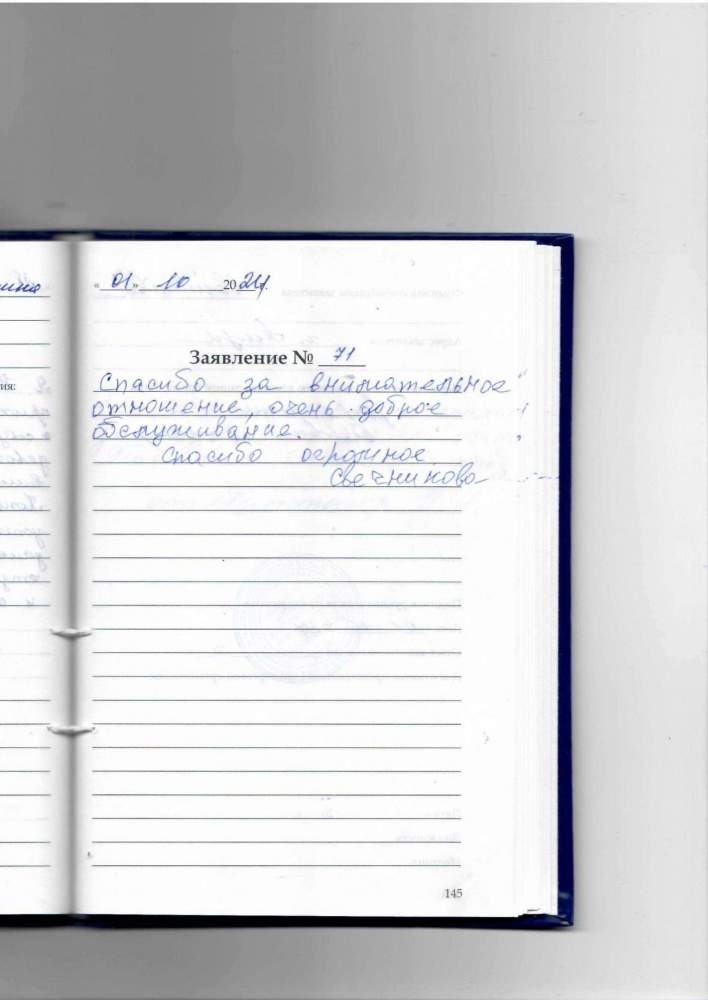 « 01 » 10 2024г.
Заявление № 71
Спасибо за внимательное
отношение, очень доброе
обслуживание.
Спасибо огромное
Свечникова
ния:
145